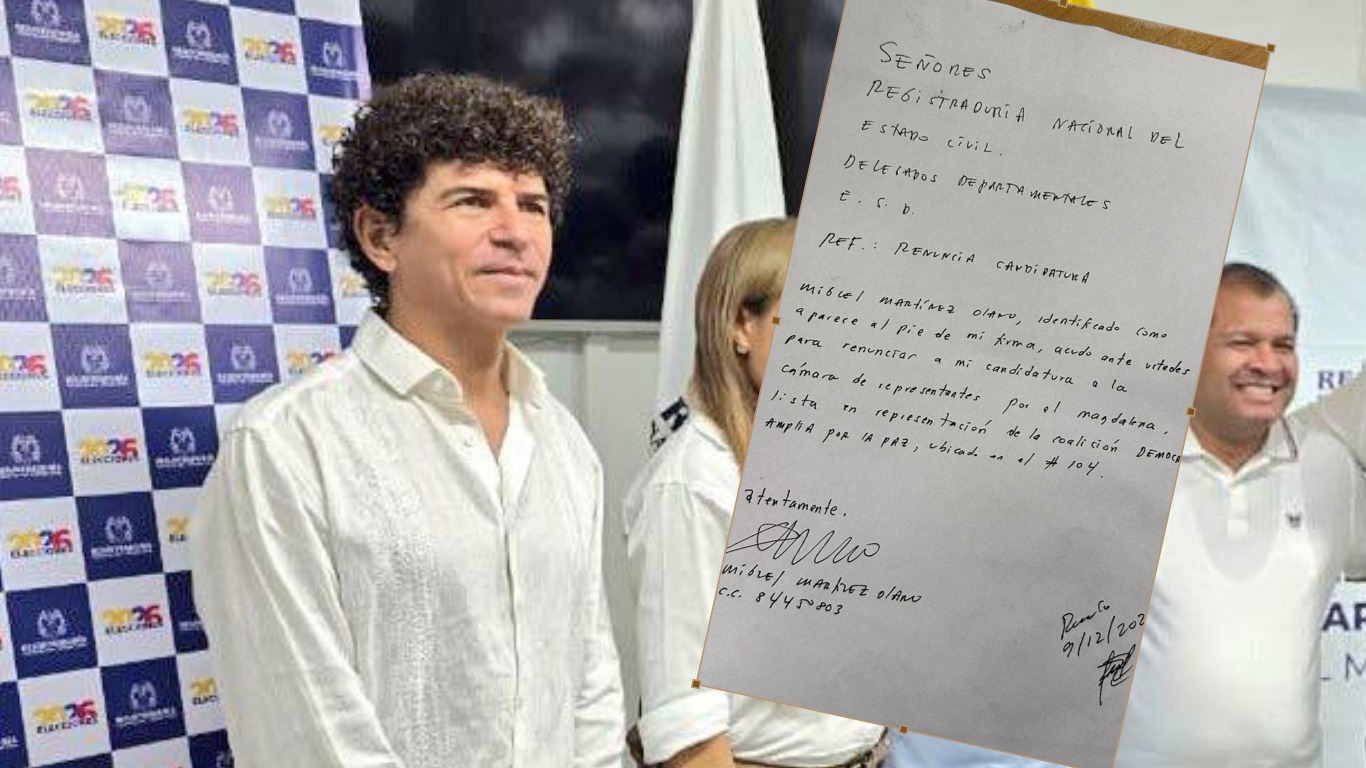 SEÑORES
REGISTRADURIA NACIONAL DEL
ESTADO CIVIL.
DELEGADOS DEPARTAMENTALES
E. S. D.
REF.: RENUNCIA CANDIDATURA
MIGUEL MARTÍNEZ OLANO, identificado como
aparece al pie de mi firma, acudo ante ustedes
para renunciar a mi candidatura a la
cámara de representantes por el magdalena,
lista en representación de la coalición DEMOCR
AMPLIA POR LA PAZ, ubicado en el # 104.
atentamente.
MIGUEL MARTÍNEZ OLANO
C.C. 84450803
9/12/202
2026
ELECCIONES
REGISTRADURÍA